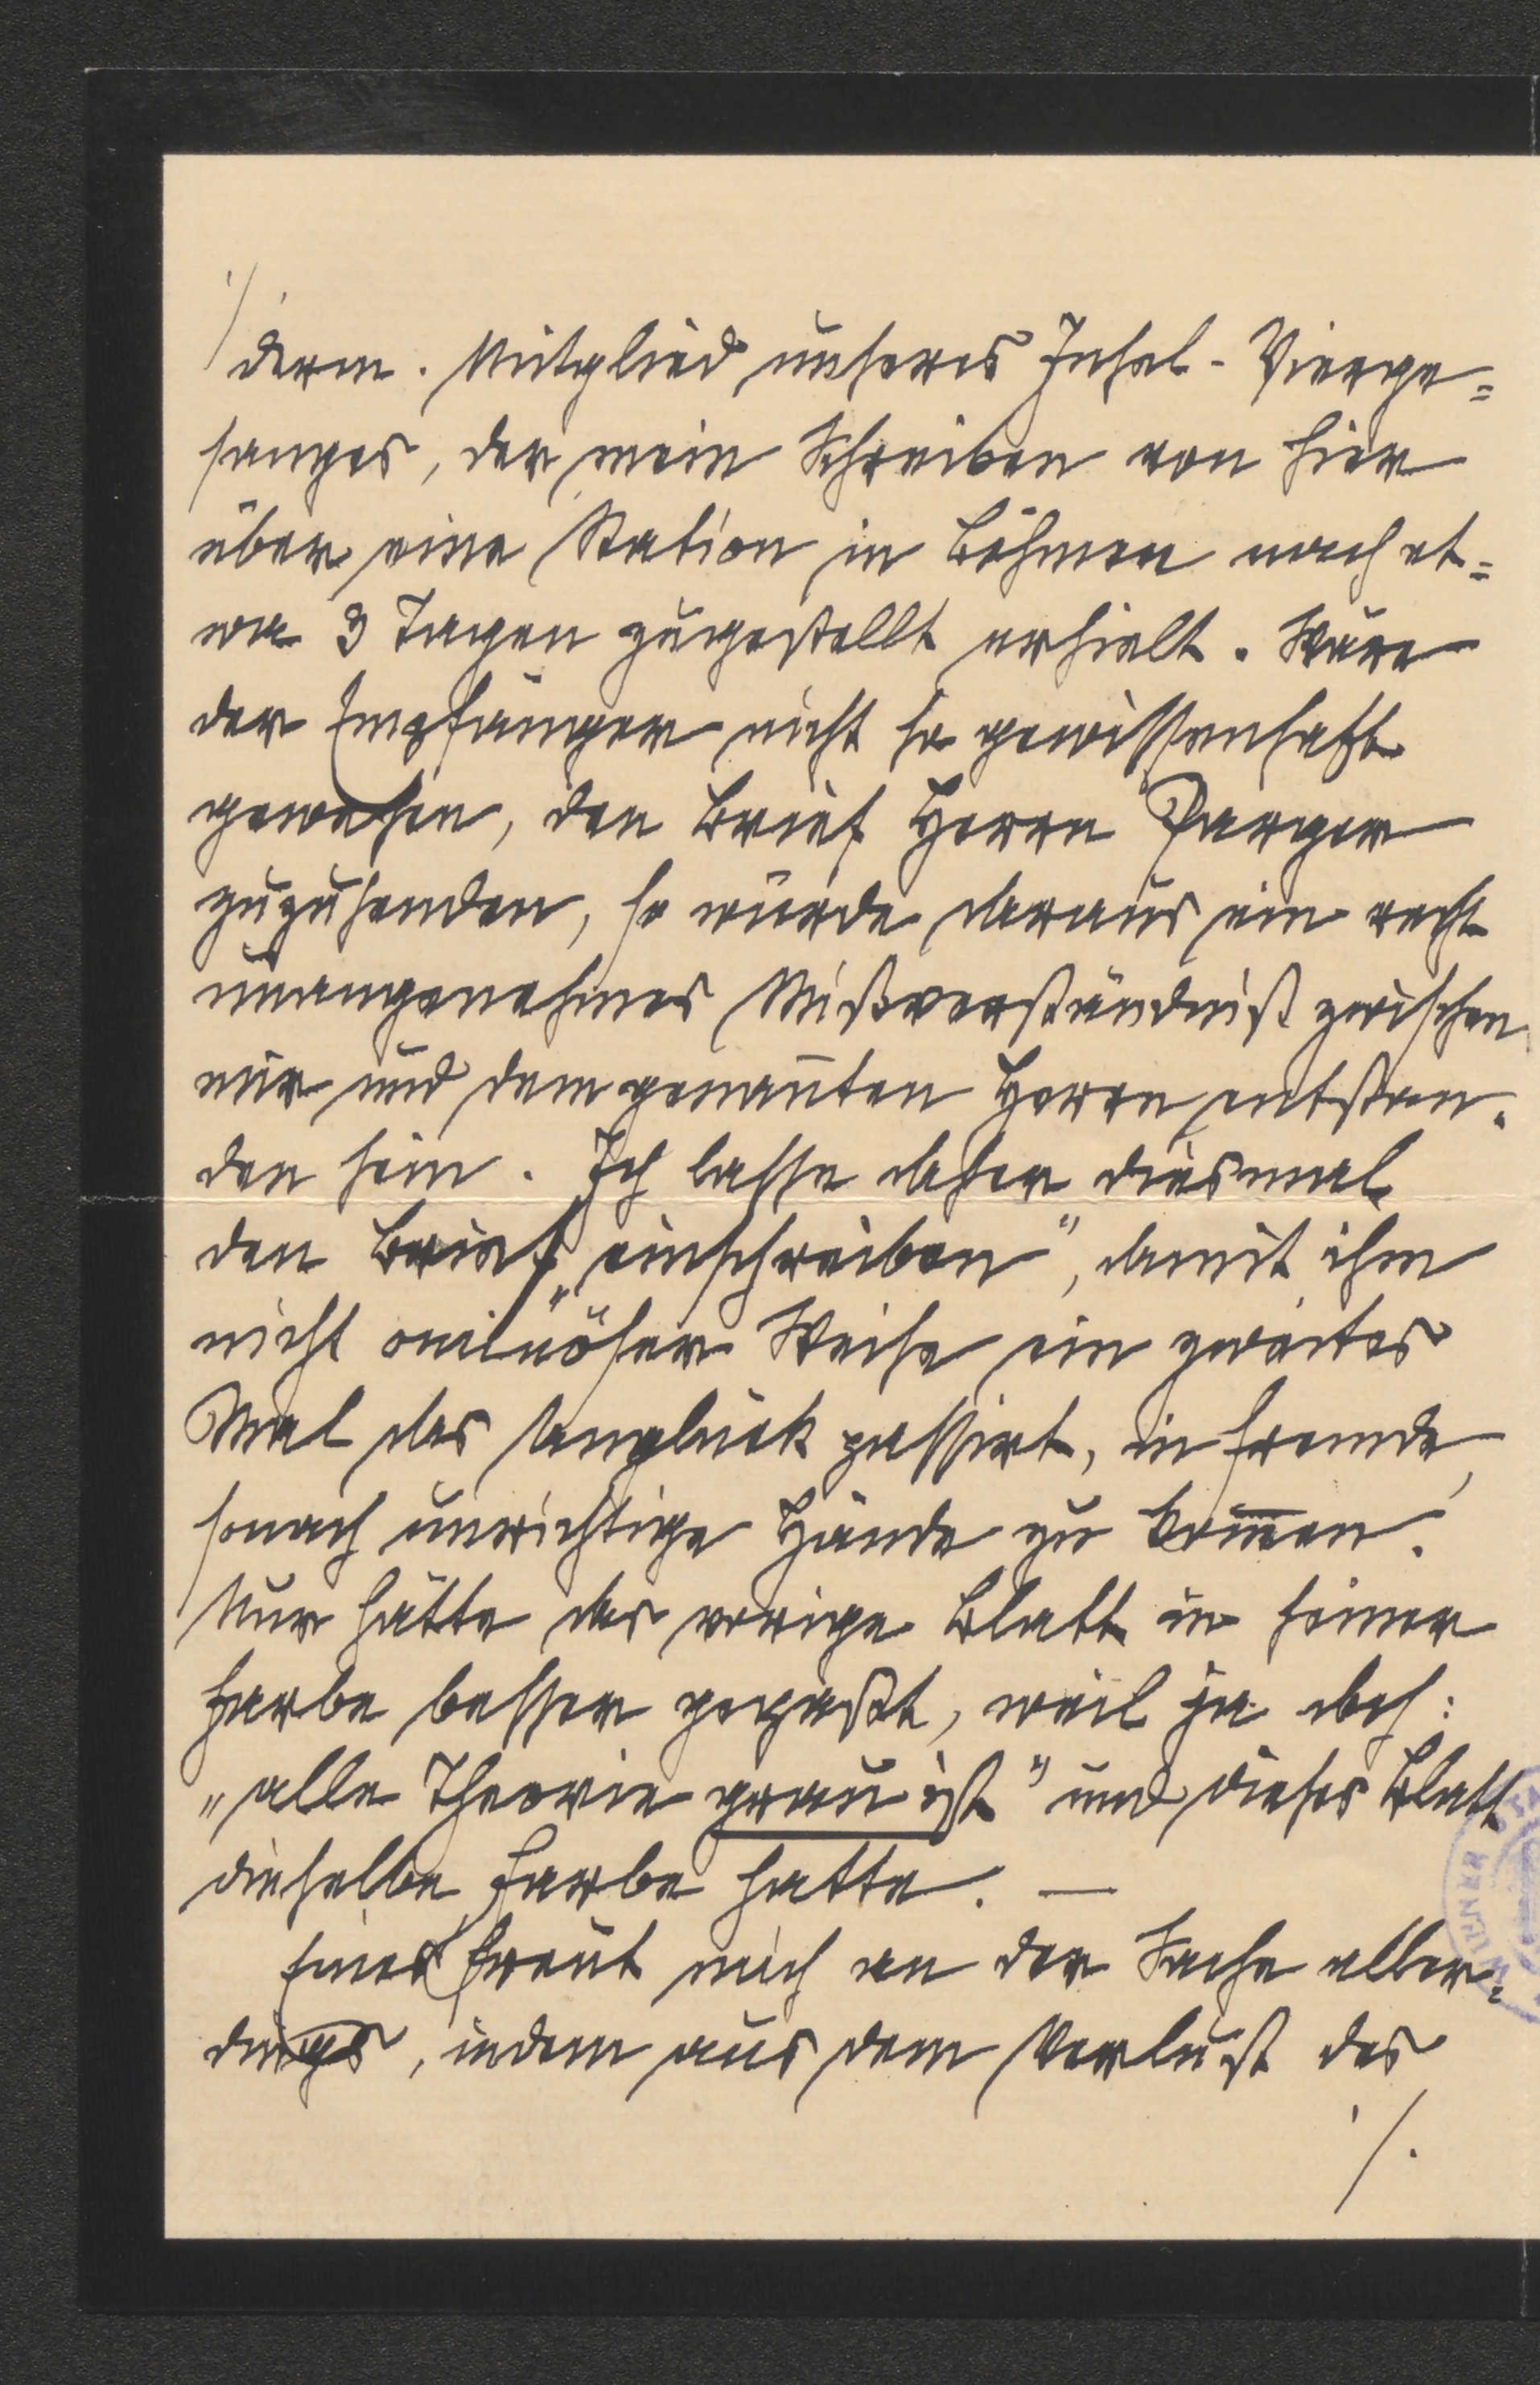 derm. Mitglied unseres Insel-Vierge=
sanges, der mein Schreiben von hier
über eine Station in Böhmen nach et=
wa 3 Tagen zugestellt erhielt. Wäre
der Empfänger nicht so gewissenhaft
gewesen, den Brief Herrn Parger
zuzusenden, so würde daraus ein recht
unangenehmes Mißverständniß zwischen
mir und dem genannten Herrn entstan-
den sein. Ich lasse daher diesmal
den Brief „einschreiben", damit ihm
nicht ominöser Weise ein zweites
Mal das Unglück passirt, in fremde,
sonach unrichtige Hände zu kommen.
Nur hätte das vorige Blatt in seiner
Farbe besser gepaßt, weil ja doch:
„alle Theorie grau ist" und dieses Blatt
dieselbe Farbe hatte. —
Eines freut mich an der Sache aller-
dings, indem aus dem Verlust des
./.